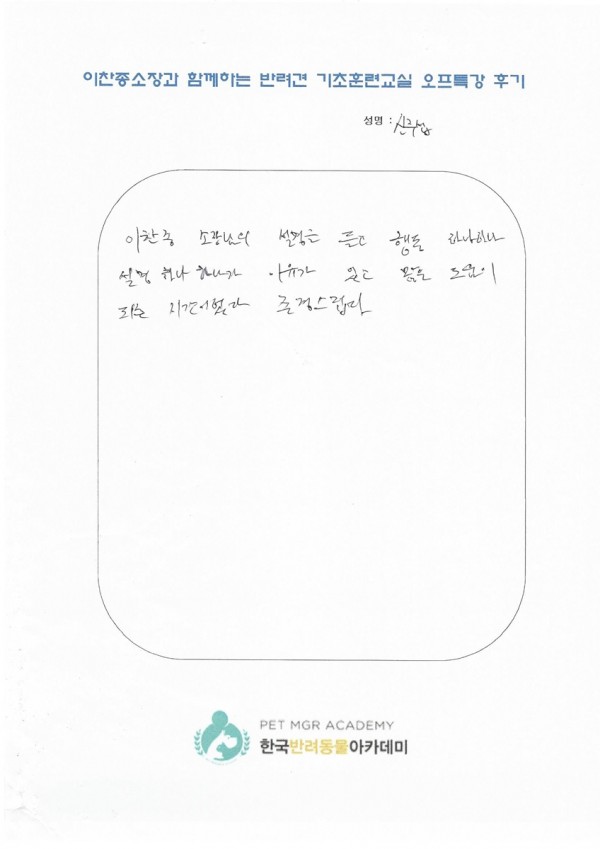 이찬종소장과 함께하는 반려견 기초훈련교실 오프특강 후기
성명 :
이찬종 소장님의 설명을 듣고 행동 하나하나
설명 하나 하나가 이유가 있고 많은 도움이
되는 시간이었다 존경스럽다
PET MGR ACADEMY
한국반려동물아카데미